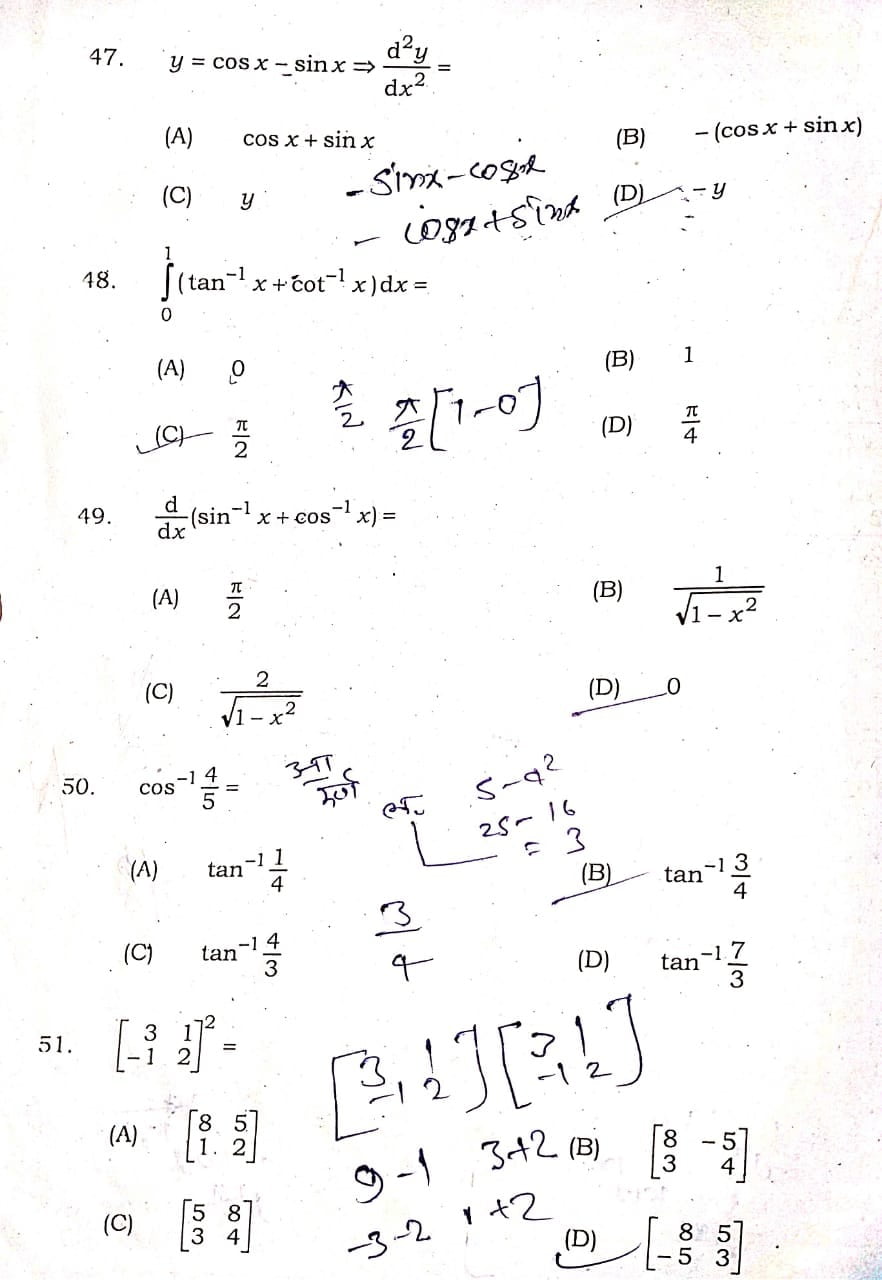 47. y = cos x – sin x ⇒ d²y/dx² =
(A) cos x + sin x (B) – (cos x + sin x)
- sinx - cosx
(C) y (D) – y
- cosx + sinx
48. ∫₀¹ (tan⁻¹ x + cot⁻¹ x) dx =
(A) 0 (B) 1
π/2 π/2 [1-0]
(C) π/2 (D) π/4
49. d/dx (sin⁻¹ x + cos⁻¹ x) =
(A) π/2 (B) 1/√1 – x²
(C) 2/√1 – x² (D) 0
50. cos⁻¹ 4/5 =
5-4²
25-16
= 3
(A) tan⁻¹ 1/4 (B) tan⁻¹ 3/4
3/4
(C) tan⁻¹ 4/3 (D) tan⁻¹ 7/3
51. [3 1; –1 2]² =
[3 1; -1 2] [3 1; -1 2]
(A) [8 5; 1. 2] (B) [8 –5; 3 4]
9-1 3+2
(C) [5 8; 3 4] (D) [8 5; –5 3]
-3-2 +2